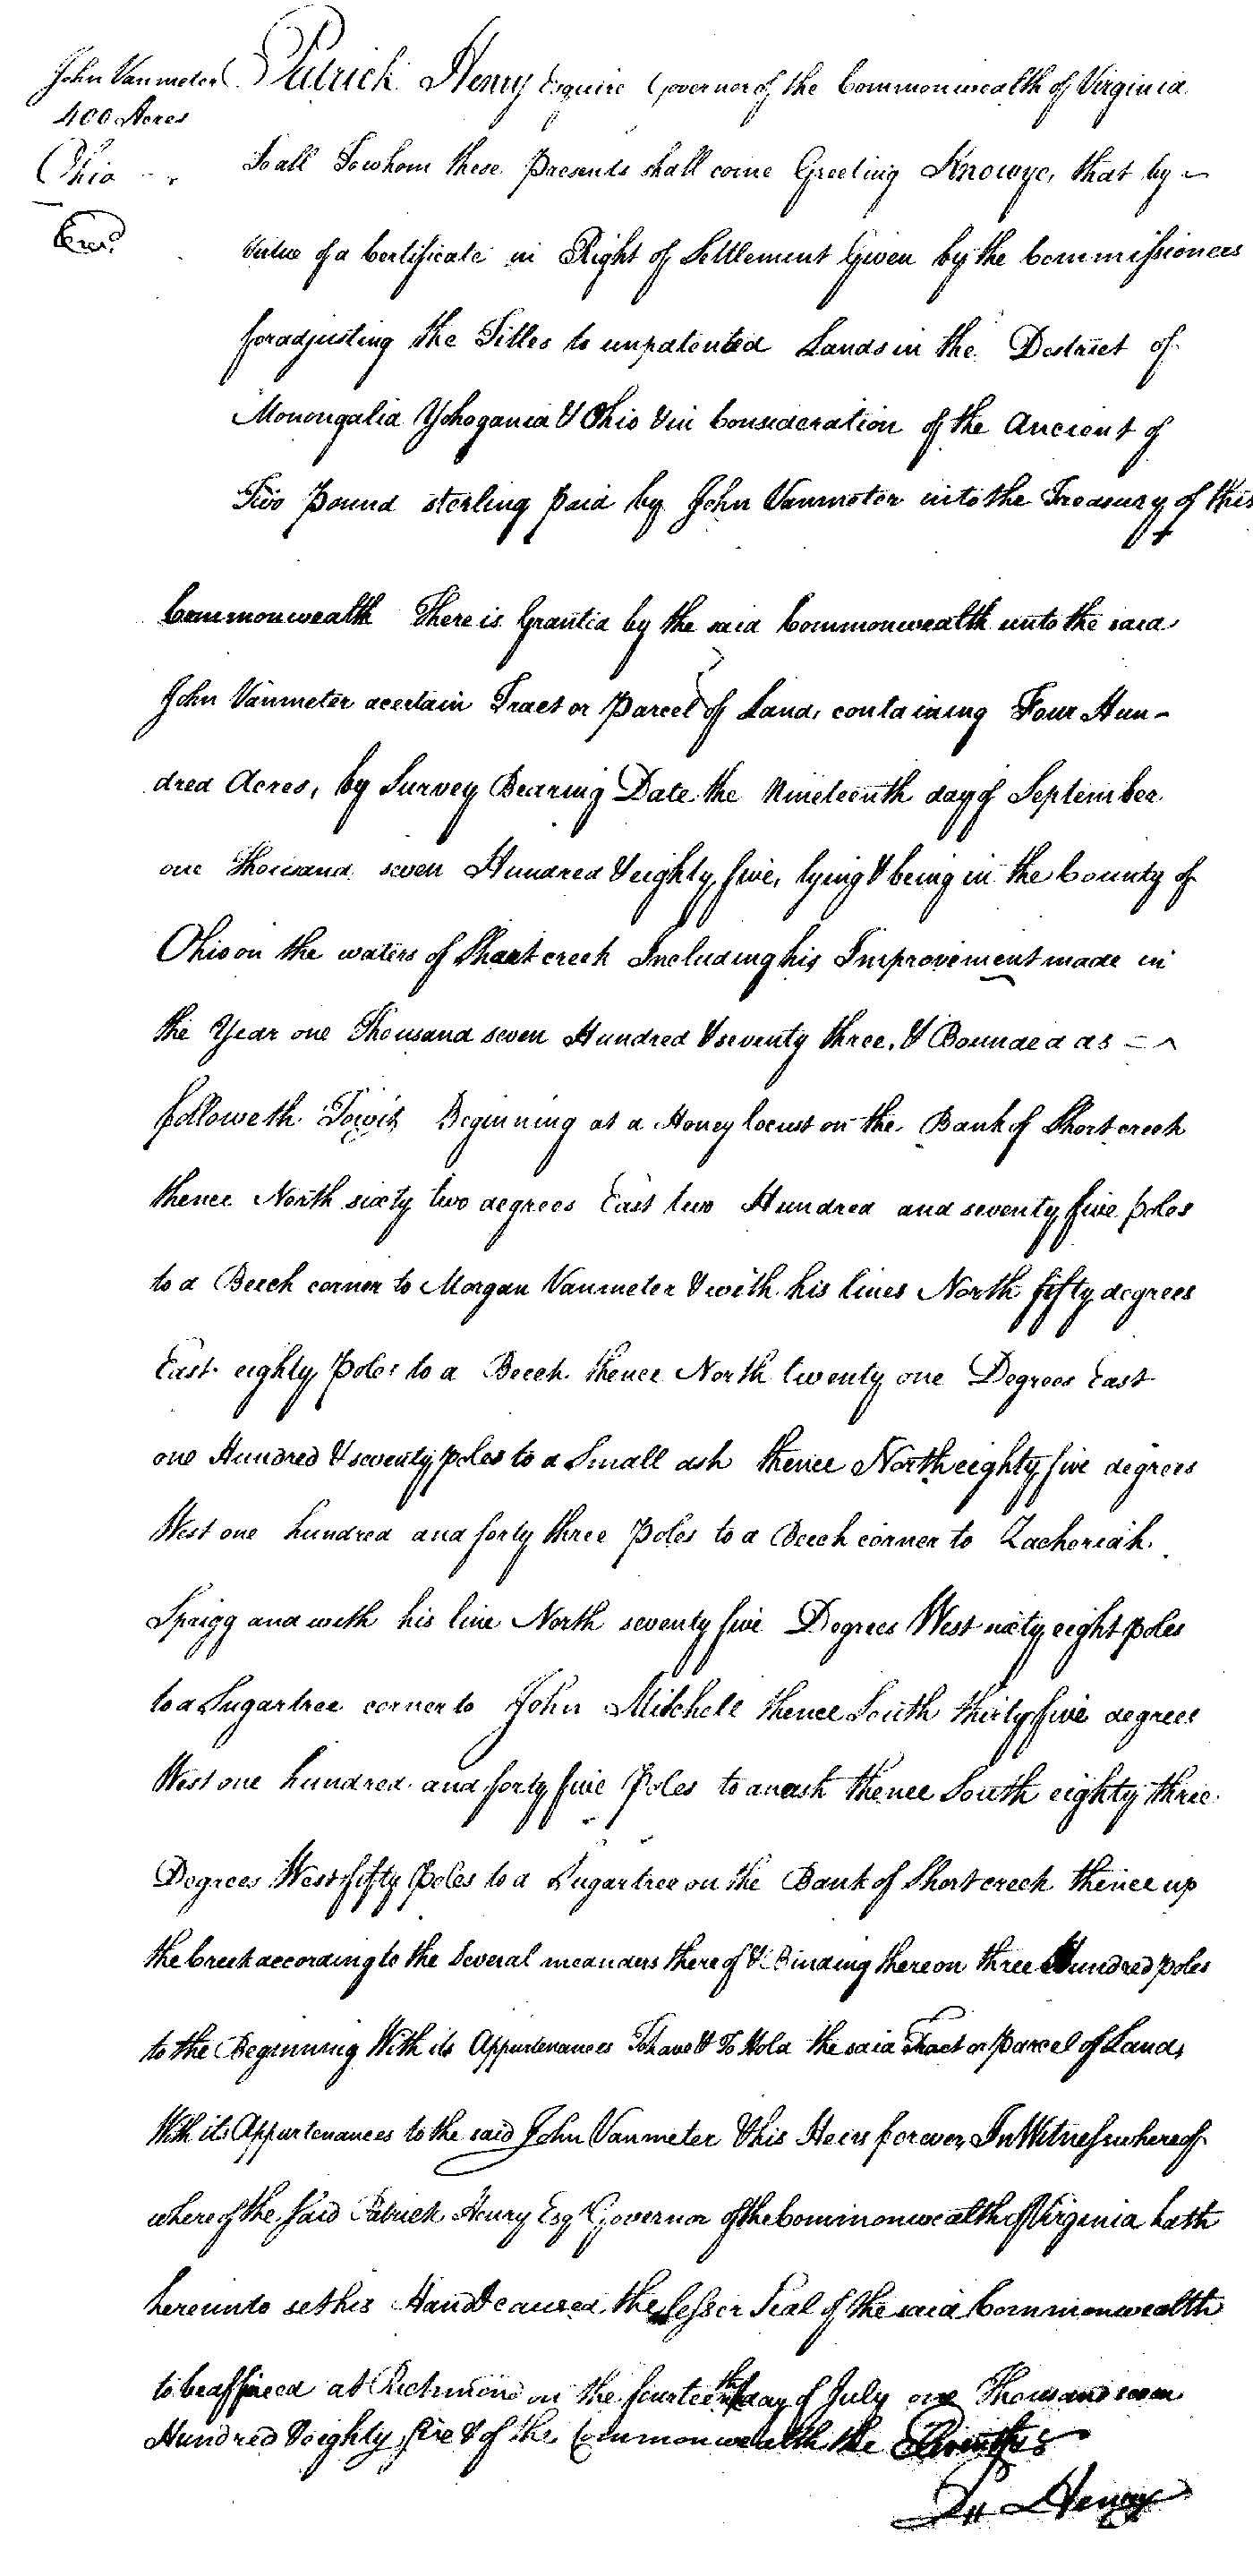 John Vanmeter
400 Acres
Ohio
Exd.
Patrick Henry Esquire Governor of the Commonwealth of Virginia
To all To whom these Presents shall come Greeting Know ye, that by
virtue of a Certificate in Right of Settlement Given by the Commissioners
for adjusting the Titles to unpatented Lands in the District of
Monongalia Yohogania & Ohio & in Consideration of the Ancient of
Two Pound sterling Paid by John Vanmeter into the Treasury of this
Commonwealth There is Granted by the said Commonwealth unto the said
John Vanmeter a certain Tract or Parcel of Land, containing Four Hun-
dred Acres, by Survey Bearing Date the Nineteenth day of September
one Thousand seven Hundred & eighty five, lying & being in the County of
Ohio on the waters of Short creek Including his Improvement made in
the Year one Thousand seven Hundred & seventy three, & Bounded as
followeth Towit, Beginning at a Honey locust on the Bank of Short creek
thence North sixty two degrees East two Hundred and seventy five poles
to a Beech corner to Morgan Vanmeter & with his lines North fifty degrees
East eighty Poles to a Beech thence North twenty one Degrees East
one Hundred & seventy poles to a Small ash thence North eighty five degrees
West one hundred and forty three Poles to a Beech corner to Zacheriah
Sprigg and with his line North seventy five Degrees West sixty eight poles
to a Sugartree corner to John Mitchell thence South thirty five degrees
West one hundred and forty five Poles to an ash thence South eighty three
Degrees West fifty Poles to a Sugartree on the Bank of Short creek thence up
the Creek according to the Several meanders there of & Binding thereon three Hundred poles
to the Beginning With its Appurtenances To have & To Hold the said Tract or Parcel of Land,
With its Appurtenances to the said John Vanmeter & his Heirs forever In Witness whereof
where of the said Patrick Henry Esqr Governor of the Commonwealth of Virginia hath
hereunto set his Hand & caused the lesser Seal of the said Commonwealth
to be affixed at Richmond on the fourteenth day of July one Thousand seven
Hundred & eighty five & of the Commonwealth the
P. Henry